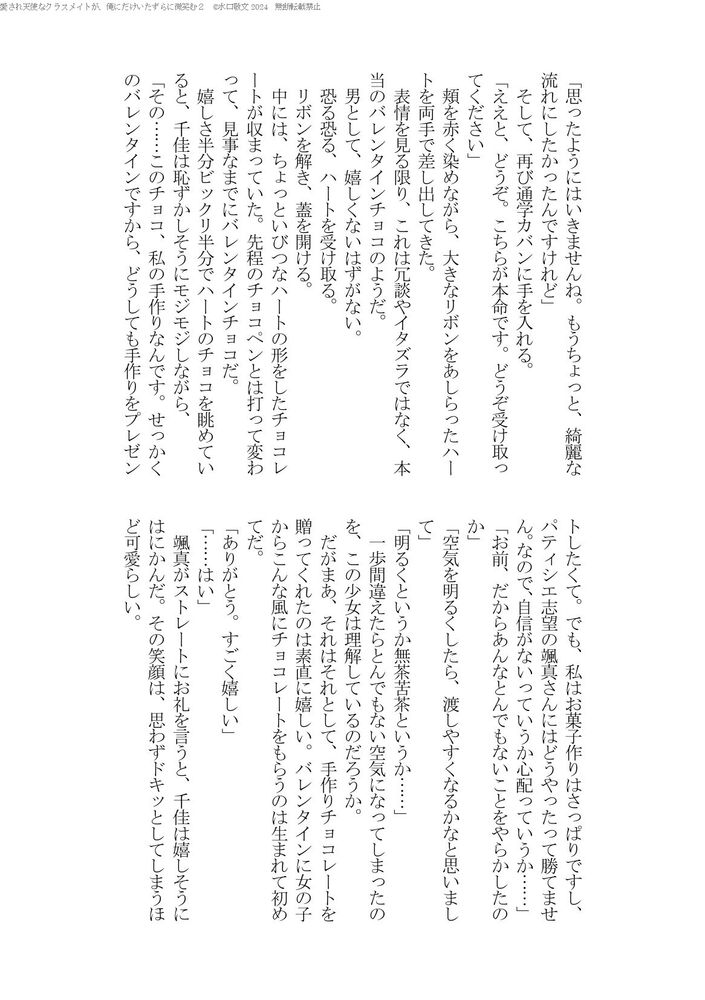 愛され天使なクラスメイトが、俺にだけいたずらに微笑む２　©水口敬文 2024　無断転載禁止
「思ったようにはいきませんね。もうちょっと、綺麗な
流れにしたかったんですけれど」
　そして、再び通学カバンに手を入れる。
「ええと、どうぞ。こちらが本命です。どうぞ受け取っ
てください」
　頬を赤く染めながら、大きなリボンをあしらったハー
トを両手で差し出してきた。
　表情を見る限り、これは冗談やイタズラではなく、本
当のバレンタインチョコのようだ。
　男として、嬉しくないはずがない。
　恐る恐る、ハートを受け取る。
　リボンを解き、蓋を開ける。
　中には、ちょっといびつなハートの形をしたチョコレ
ートが収まっていた。先程のチョコペンとは打って変わ
って、見事なまでにバレンタインチョコだ。
　嬉しさ半分ビックリ半分でハートのチョコを眺めてい
ると、千佳は恥ずかしそうにモジモジしながら、
「その……このチョコ、私の手作りなんです。せっかく
のバレンタインですから、どうしても手作りをプレゼン
トしたくて。でも、私はお菓子作りはさっぱりですし、
パティシエ志望の颯真さんにはどうやったって勝てませ
ん。なので、自信がないっていうか心配っていうか……」
「お前、だからあんなとんでもないことをやらかしたの
か」
「空気を明るくしたら、渡しやすくなるかなと思いまし
て」
「明るくというか無茶苦茶というか……」
　一歩間違えたらとんでもない空気になってしまったの
を、この少女は理解しているのだろうか。
　だがまあ、それはそれとして、手作りチョコレートを
贈ってくれたのは素直に嬉しい。バレンタインに女の子
からこんな風にチョコレートをもらうのは生まれて初め
てだ。
「ありがとう。すごく嬉しい」
「……はい」
　颯真がストレートにお礼を言うと、千佳は嬉しそうに
はにかんだ。その笑顔は、思わずドキッとしてしまうほ
ど可愛らしい。